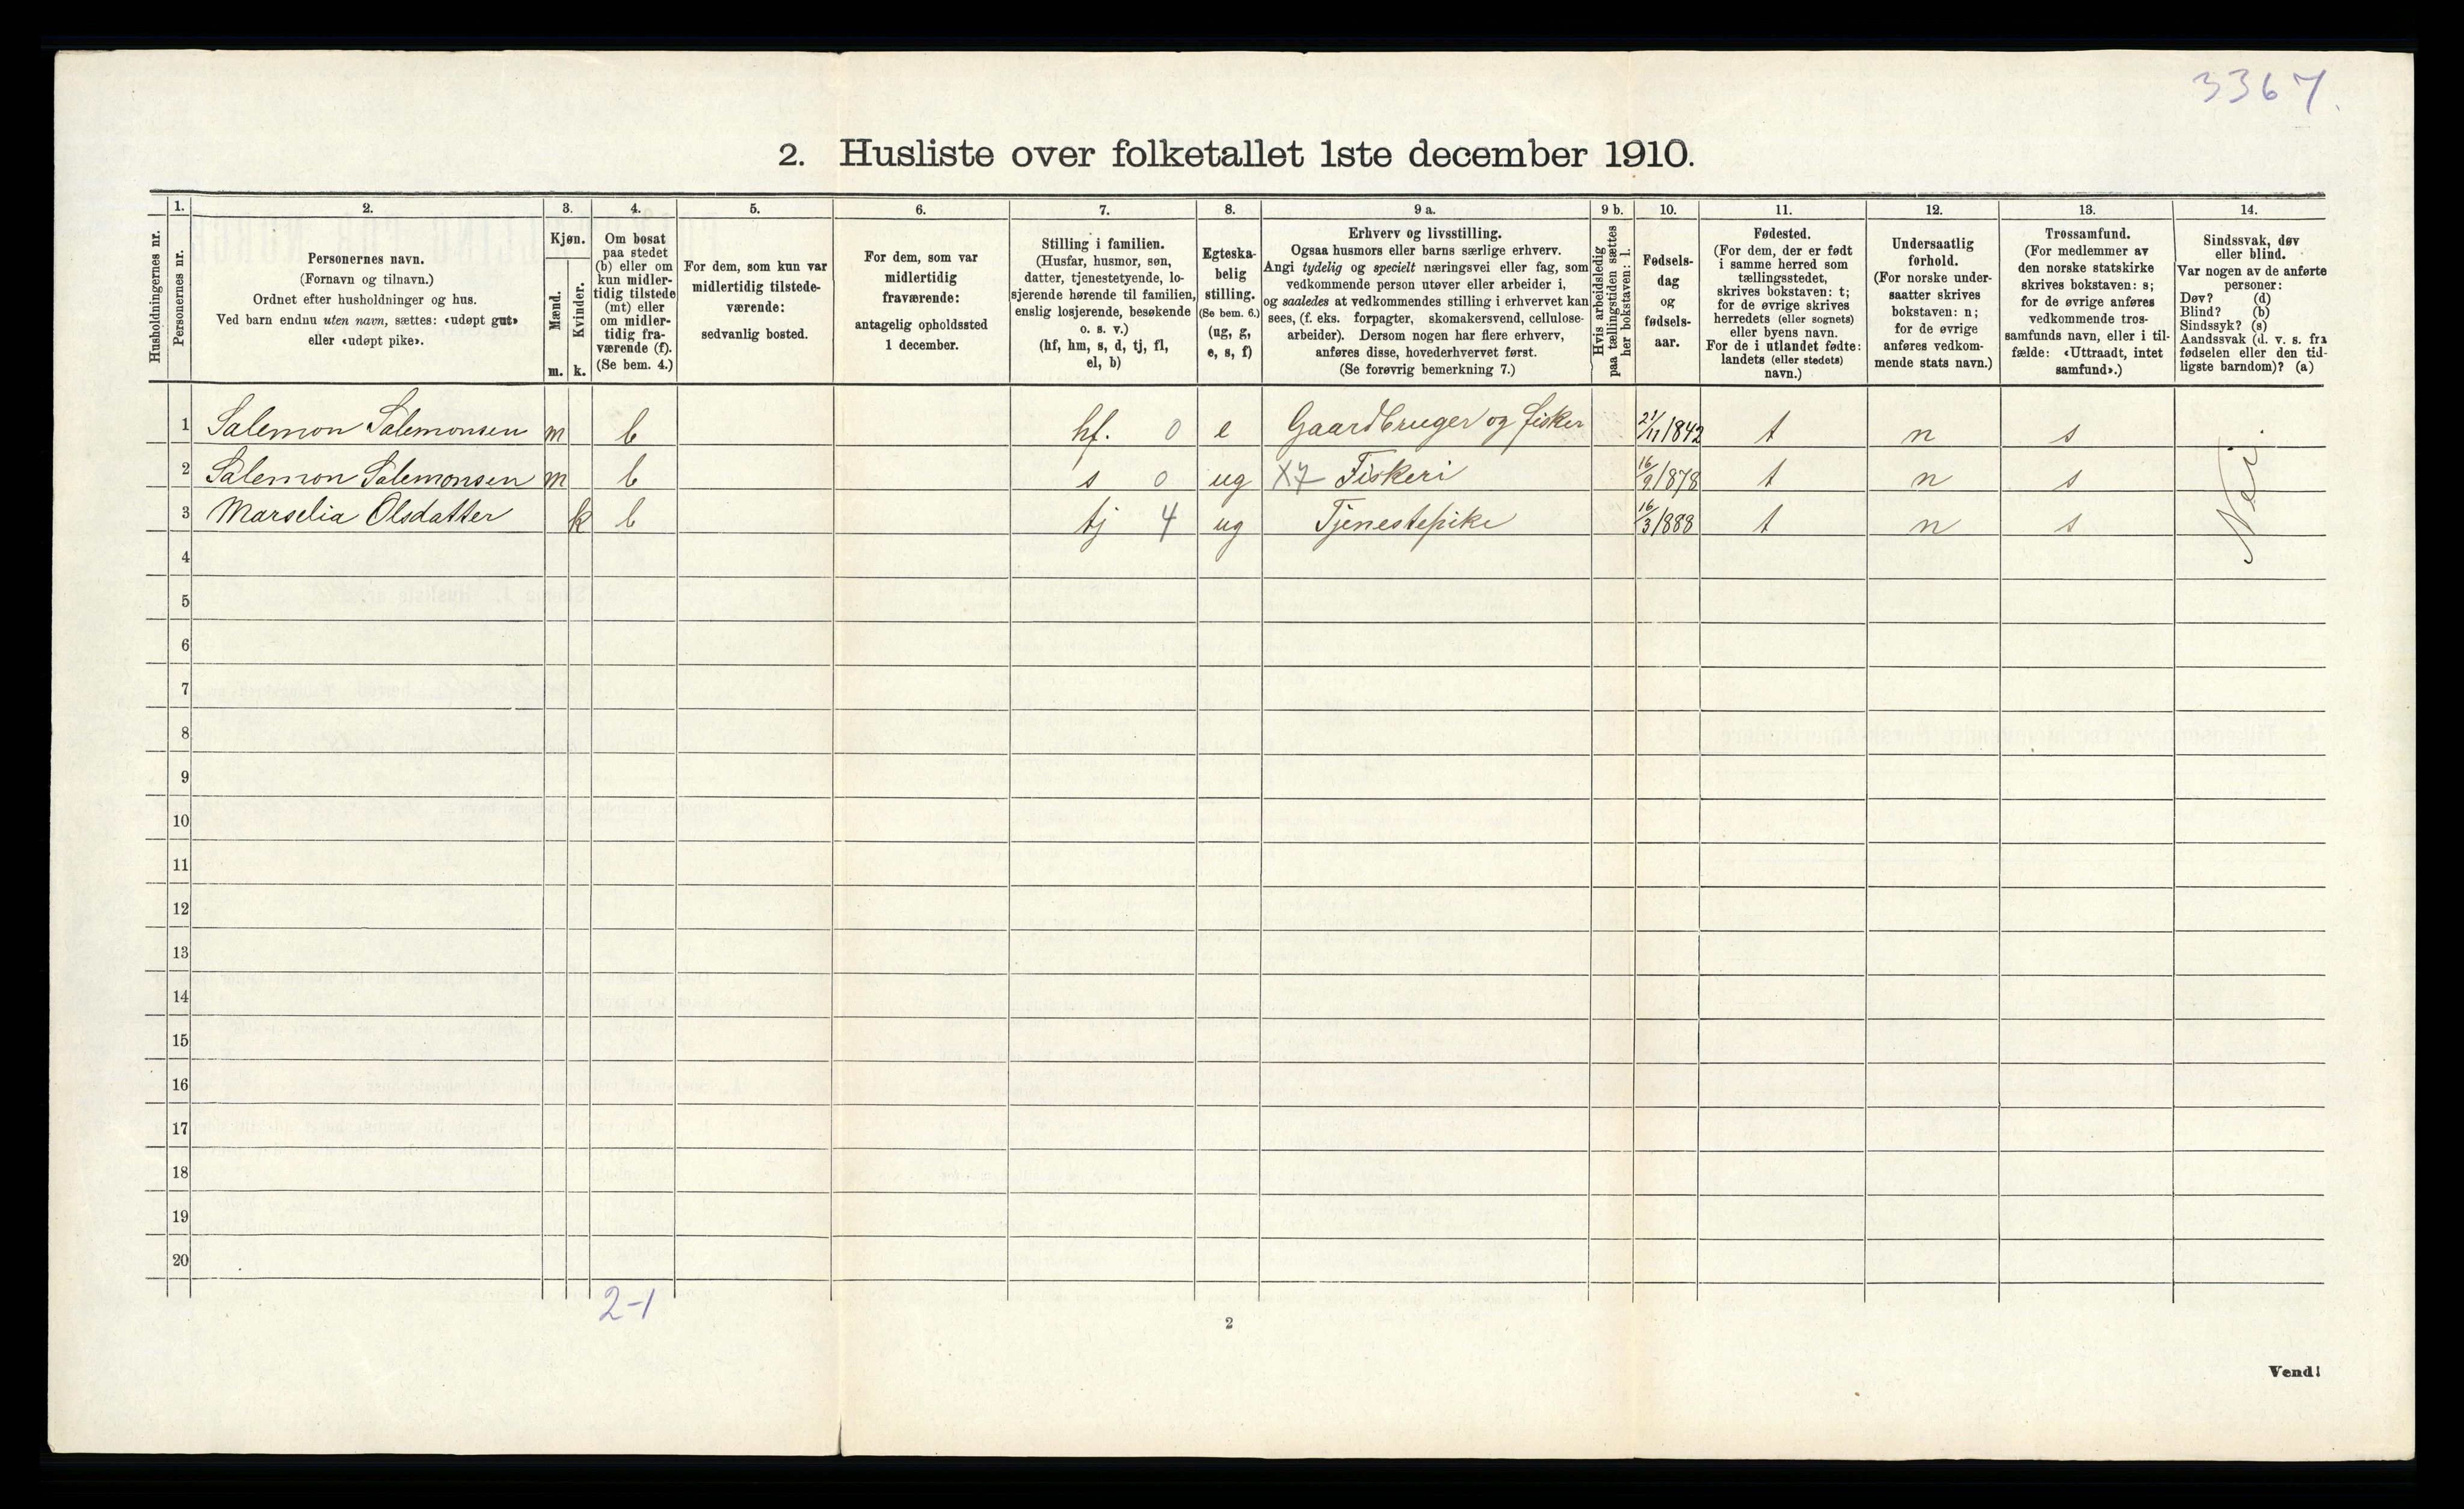 3367.
2. Husliste over folketallet 1ste december 1910.
Husholdningernes nr.
1.
Personernes nr.
2.
Personernes navn.
(Fornavn og tilnavn.)
Ordnet efter husholdninger og hus.
Ved barn endnu uten navn, sættes: «udøpt gut»
eller «udøpt pike».
3.
Kjøn.
Mænd.
Kvinder.
m. k.
4.
Om bosat
paa stedet
(b) eller om
kun midler-
tidig tilstede
(mt) eller
om midler-
tidig fra-
værende (f).
(Se bem. 4.)
5.
For dem, som kun var
midlertidig tilstede-
værende:
sedvanlig bosted.
6.
For dem, som var
midlertidig
fraværende:
antagelig opholdssted
1 december.
7.
Stilling i familien.
(Husfar, husmor, søn,
datter, tjenestetyende, lo-
sjerende hørende til familien,
enslig losjerende, besøkende
o. s. v.)
(hf, hm, s, d, tj, fl,
el, b)
8.
Egteska-
belig
stilling.
(Se bem. 6.)
(ug, g,
e, s, f)
9 a.
Erhverv og livsstilling.
Ogsaa husmors eller barns særlige erhverv.
Angi tydelig og specielt næringsvei eller fag, som
vedkommende person utøver eller arbeider i,
og saaledes at vedkommendes stilling i erhvervet kan
sees, (f. eks. forpagter, skomakersvend, cellulose-
arbeider). Dersom nogen har flere erhverv,
anføres disse, hovederhvervet først.
(Se forøvrig bemerkning 7.)
9 b.
Hvis arbeidsledig
paa tællingstiden sættes
her bokstaven: l.
10.
Fødsels-
dag
og
fødsels-
aar.
11.
Fødested.
(For dem, der er født
i samme herred som
tællingsstedet,
skrives bokstaven: t;
for de øvrige skrives
herredets (eller sognets)
eller byens navn.
For de i utlandet fødte:
landets (eller stedets)
navn.)
12.
Undersaatlig
forhold.
(For norske under-
saatter skrives
bokstaven: n;
for de øvrige
anføres vedkom-
mende stats navn.)
13.
Trossamfund.
(For medlemmer av
den norske statskirke
skrives bokstaven: s;
for de øvrige anføres
vedkommende tros-
samfunds navn, eller i til-
fælde: «Uttraadt, intet
samfund».)
14.
Sindssvak, døv
eller blind.
Var nogen av de anførte
personer:
Døv? (d)
Blind? (b)
Sindssyk? (s)
Aandssvak (d. v. s. fra
fødselen eller den tid-
ligste barndom)? (a)
1 Salemon Salemonsen m b hf. 0 e Gaardbruger og fisker 21/11 1842 t n s
2 Salemon Salemonsen m b s 0 ug X7 Fiskeri 16/9 1878 t n s
3 Marselia Olsdatter k b tj 4 ug Tjenestepike 16/3 1888 t n s
Nei.
4
5
6
7
8
9
10
11
12
13
14
15
16
17
18
19
20
2-1
2
Vend!